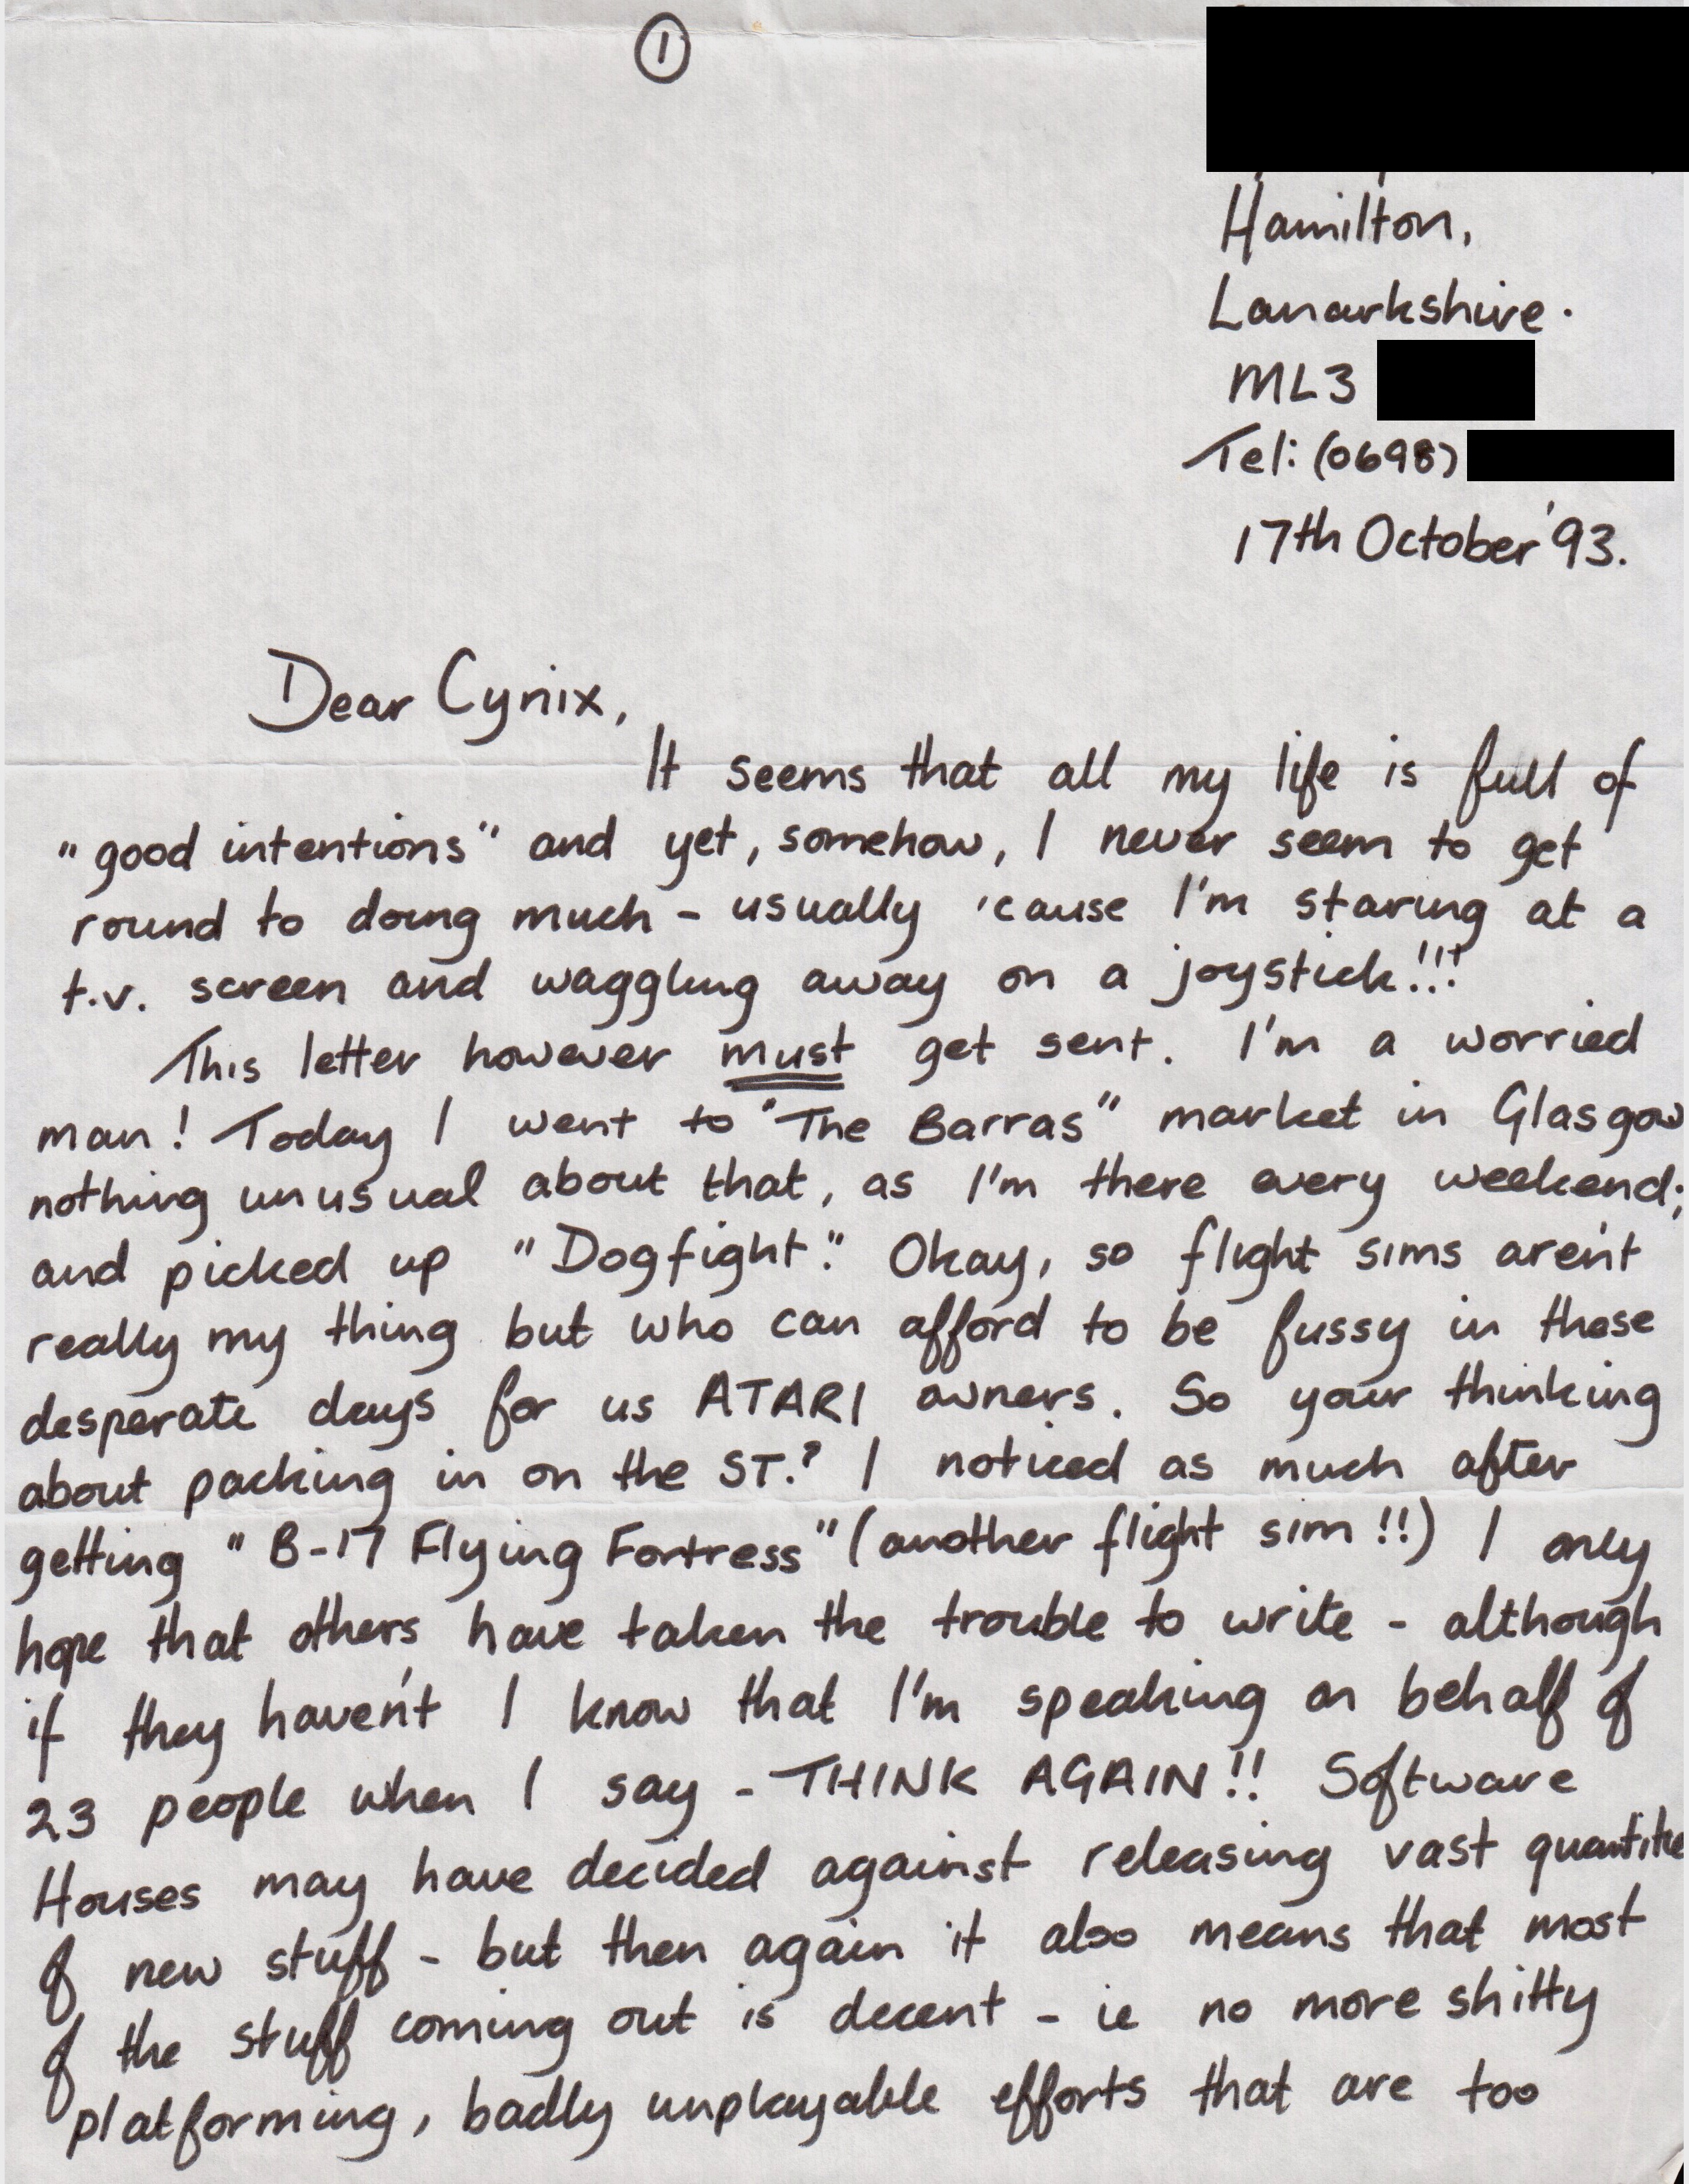 1
Hamilton,
Lanarkshire.
ML3
Tel: (0698)
17th October '93.
Dear Cynix,
It seems that all my life is full of
"good intentions" and yet, somehow, I never seem to get
round to doing much - usually 'cause I'm staring at a
t.v. screen and waggling away on a joystick!!!
This letter however must get sent. I'm a worried
man! Today I went to "The Barras" market in Glasgow
nothing unusual about that, as I'm there every weekend;
and picked up "Dogfight". Okay, so flight sims aren't
really my thing but who can afford to be fussy in these
desperate days for us ATARI owners. So your thinking
about packing in on the ST.? I noticed as much after
getting "B-17 Flying Fortress" (another flight sim!!) I only
hope that others have taken the trouble to write - although
if they haven't I know that I'm speaking on behalf of
23 people when I say - THINK AGAIN!! Software
Houses may have decided against releasing vast quantitie
of new stuff - but then again it also means that most
of the stuff coming out is decent - ie no more shitty
platforming, badly unplayable efforts that are too